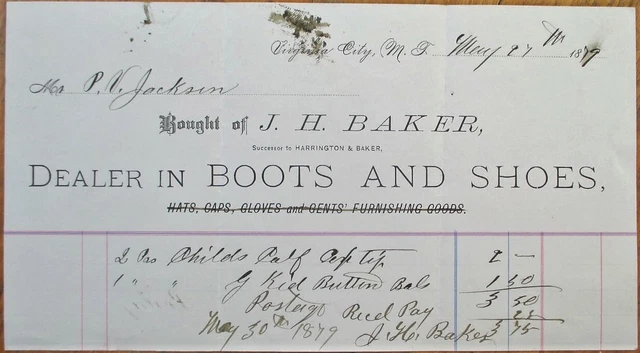 Virginia City, M. T. May 27th 1879
Mr P. V. Jackson
Bought of J. H. BAKER,
Successor to HARRINGTON & BAKER,
DEALER IN BOOTS AND SHOES,
HATS, CAPS, GLOVES and GENTS' FURNISHING GOODS.
2 Prs Childs Calf Cap tip 2 —
1 " " G Kid Button Bals 1 50
3 50
Postage 25
Recd Pay 3 75
May 30th 1879 J. H. Baker